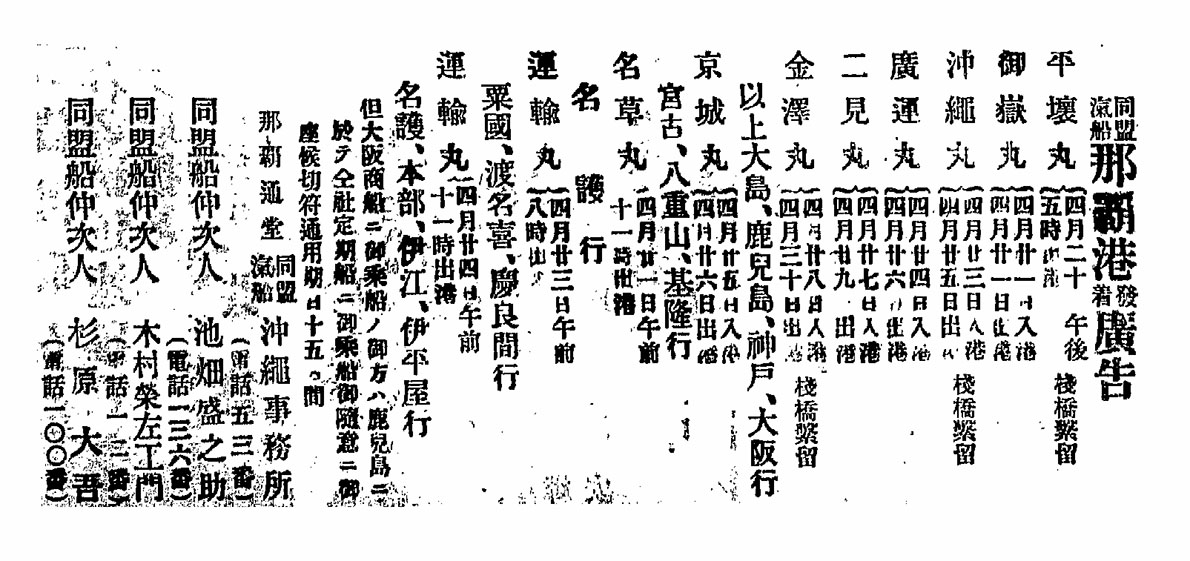 同盟汽船那覇港發着廣告
平壤丸 四月二十 午後五時出港 棧橋繫留
御嶽丸 四月廿一日入港 四月廿一日出港
沖繩丸 四月廿三日入港 四月廿五日出港 棧橋繫留
廣運丸 四月廿四日入港 四月廿六日出港
二見丸 四月廿七日入港 四月廿九 出港
金澤丸 四月廿八日入港 四月三十日出港 棧橋繫留
以上大島、鹿兒島、神戸、大阪行
京城丸 四月廿五日入港 四月廿六日出港
宮古、八重山、基隆行
名草丸 四月廿一日午前十一時出港
名護行
運輸丸 四月廿三日午前八時出
粟國、渡名喜、慶良間行
運輸丸 四月廿四日午前十一時出港
名護、本部、伊江、伊平屋行
但大阪商船ニ御乘船ノ御方ハ鹿兒島ニ
於テ仝社定期船ニ御乘船御隨意ニ御
座候切符通用期日十五日間
那覇通堂 同盟滊船 沖繩事務所
(電話五三番)
同盟船仲次人 池畑盛之助
(電話一三六番)
同盟船仲次人 木村榮左工門
(電話一一二番)
同盟船仲次人 杉原大吾
(電話一〇〇番)